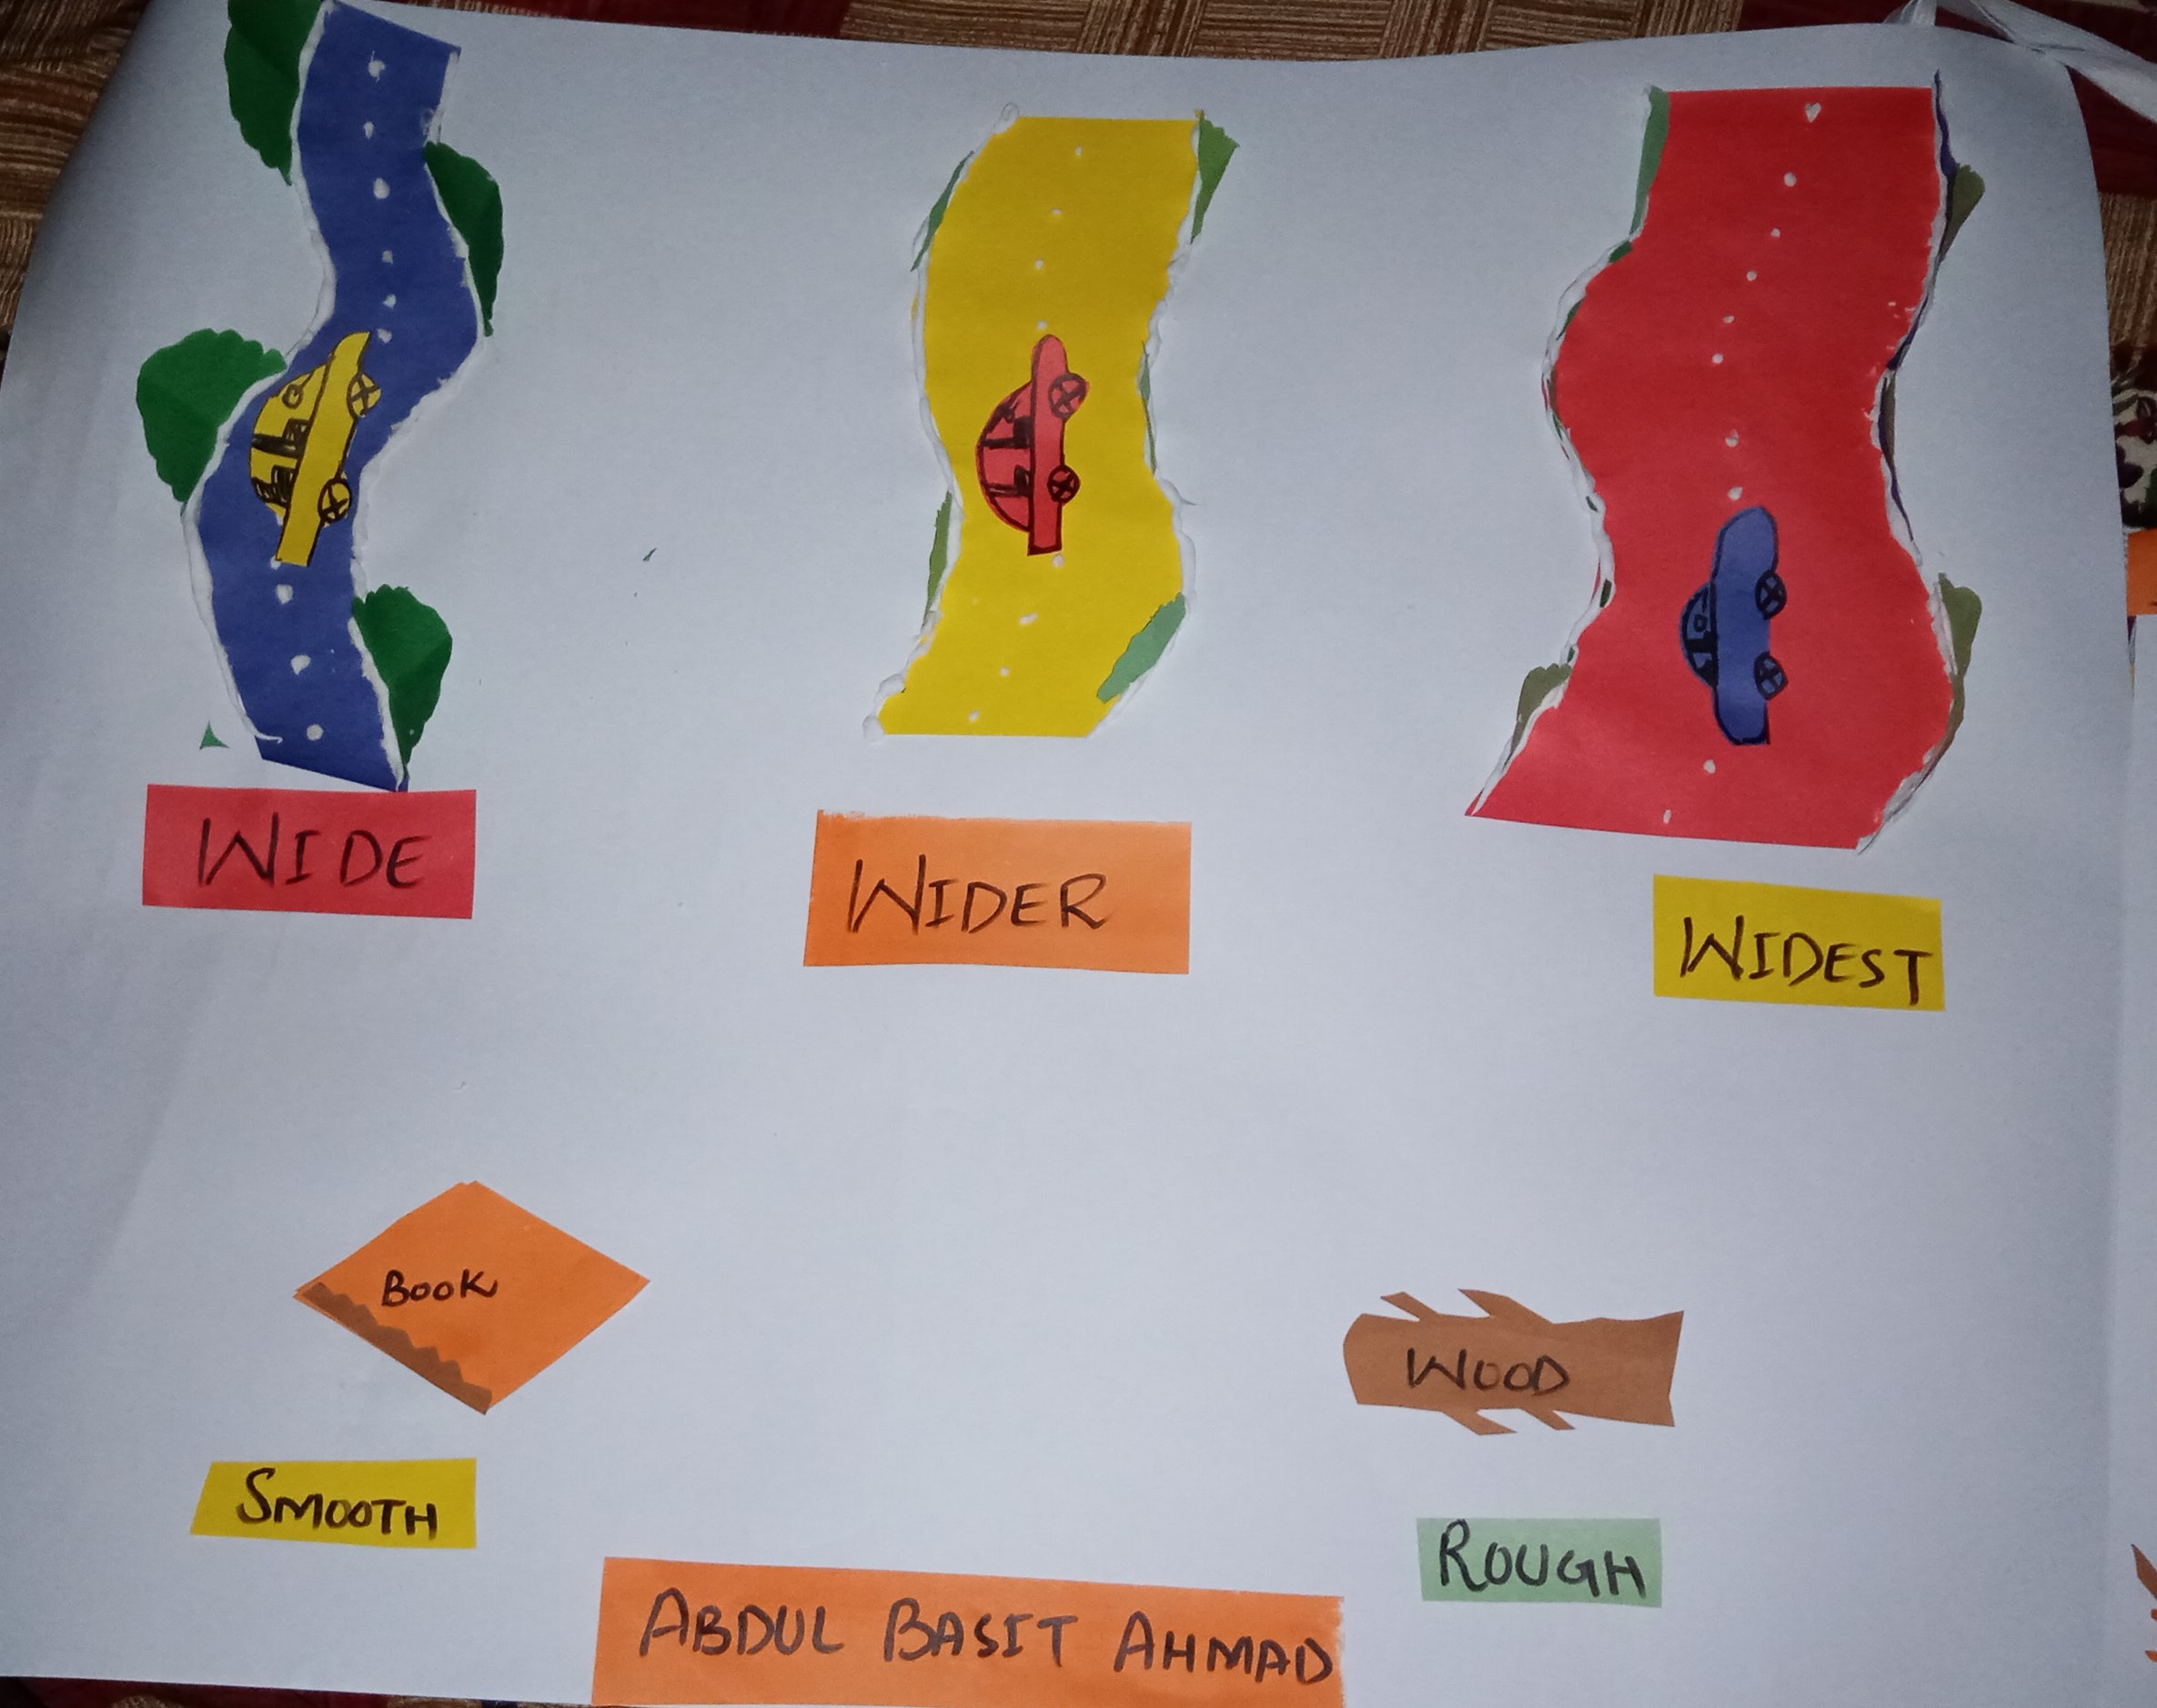 WIDE
WIDER
WIDEST
BOOK
WOOD
SMOOTH
ROUGH
ABDUL BASIT AHMAD